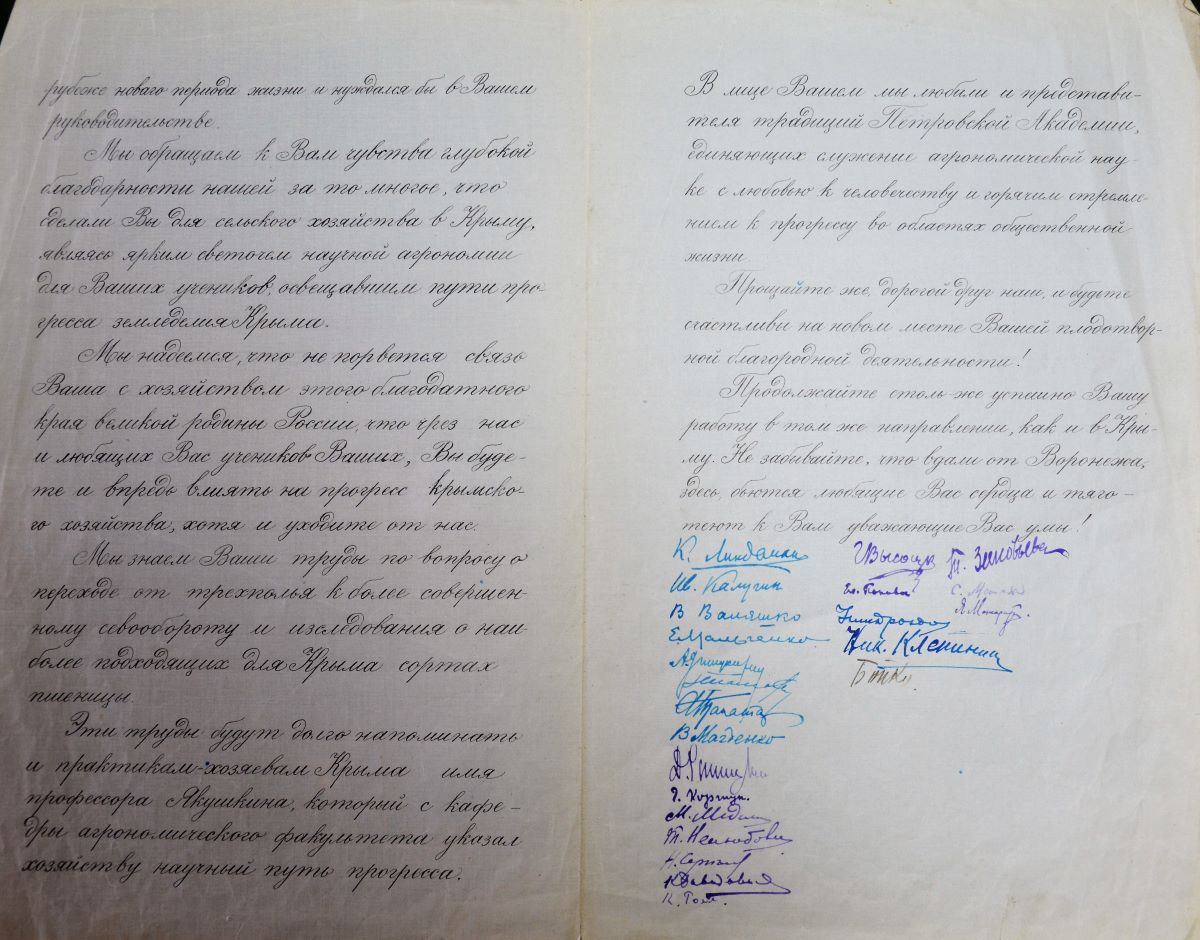 рубеже новаго периода жизни и нуждался бы в Вашем
руководительстве.
Мы обращаем к Вам чувства глубокой
благодарности нашей за то многое, что
сделали Вы для сельского хозяйства в Крыму,
являясь ярким светочем научной агрономии
для Ваших учеников, освещавшим пути про-
гресса земледелия Крыма.
Мы надеемся, что не порвется связь
Ваша с хозяйством этого благодатного
края великой родины России, что чрез нас
и любящих Вас учеников Ваших, Вы буде-
те и впредь влиять на прогресс крымско-
го хозяйства, хотя и уходите от нас.
Мы знаем Ваши труды по вопросу о
переходе от трехполья к более совершен-
ному севообороту и изследования о наи-
более подходящих для Крыма сортах
пшеницы.
Эти труды будут долго напоминать
и практикам-хозяевам Крыма имя
профессора Якушкина, который с кафе-
дры агрономического факультета указал
хозяйству научный путь прогресса.
В лице Вашем мы любили и представи-
теля традиций Петровской Академии,
единяющих служение агрономической нау-
ке с любовью к человечеству и горячим стремле-
нием к прогрессу во областях общественной
жизни.
Прощайте же, дорогой друг наш, и будьте
счастливы на новом месте Вашей плодотвор-
ной благородной деятельности!
Продолжайте столь же успешно Вашу
работу в том же направлении, как и в Кры-
му. Не забывайте, что вдали от Воронежа,
здесь, бьются любящие Вас сердца и тяго-
теют к Вам уважающие Вас умы!
К.
Ив. Калугин
В Валяшко
В Магденко
Г. Высоцк
Т. Зиновьева
Ел. Попова
Ник. Клепинин
К Давидович